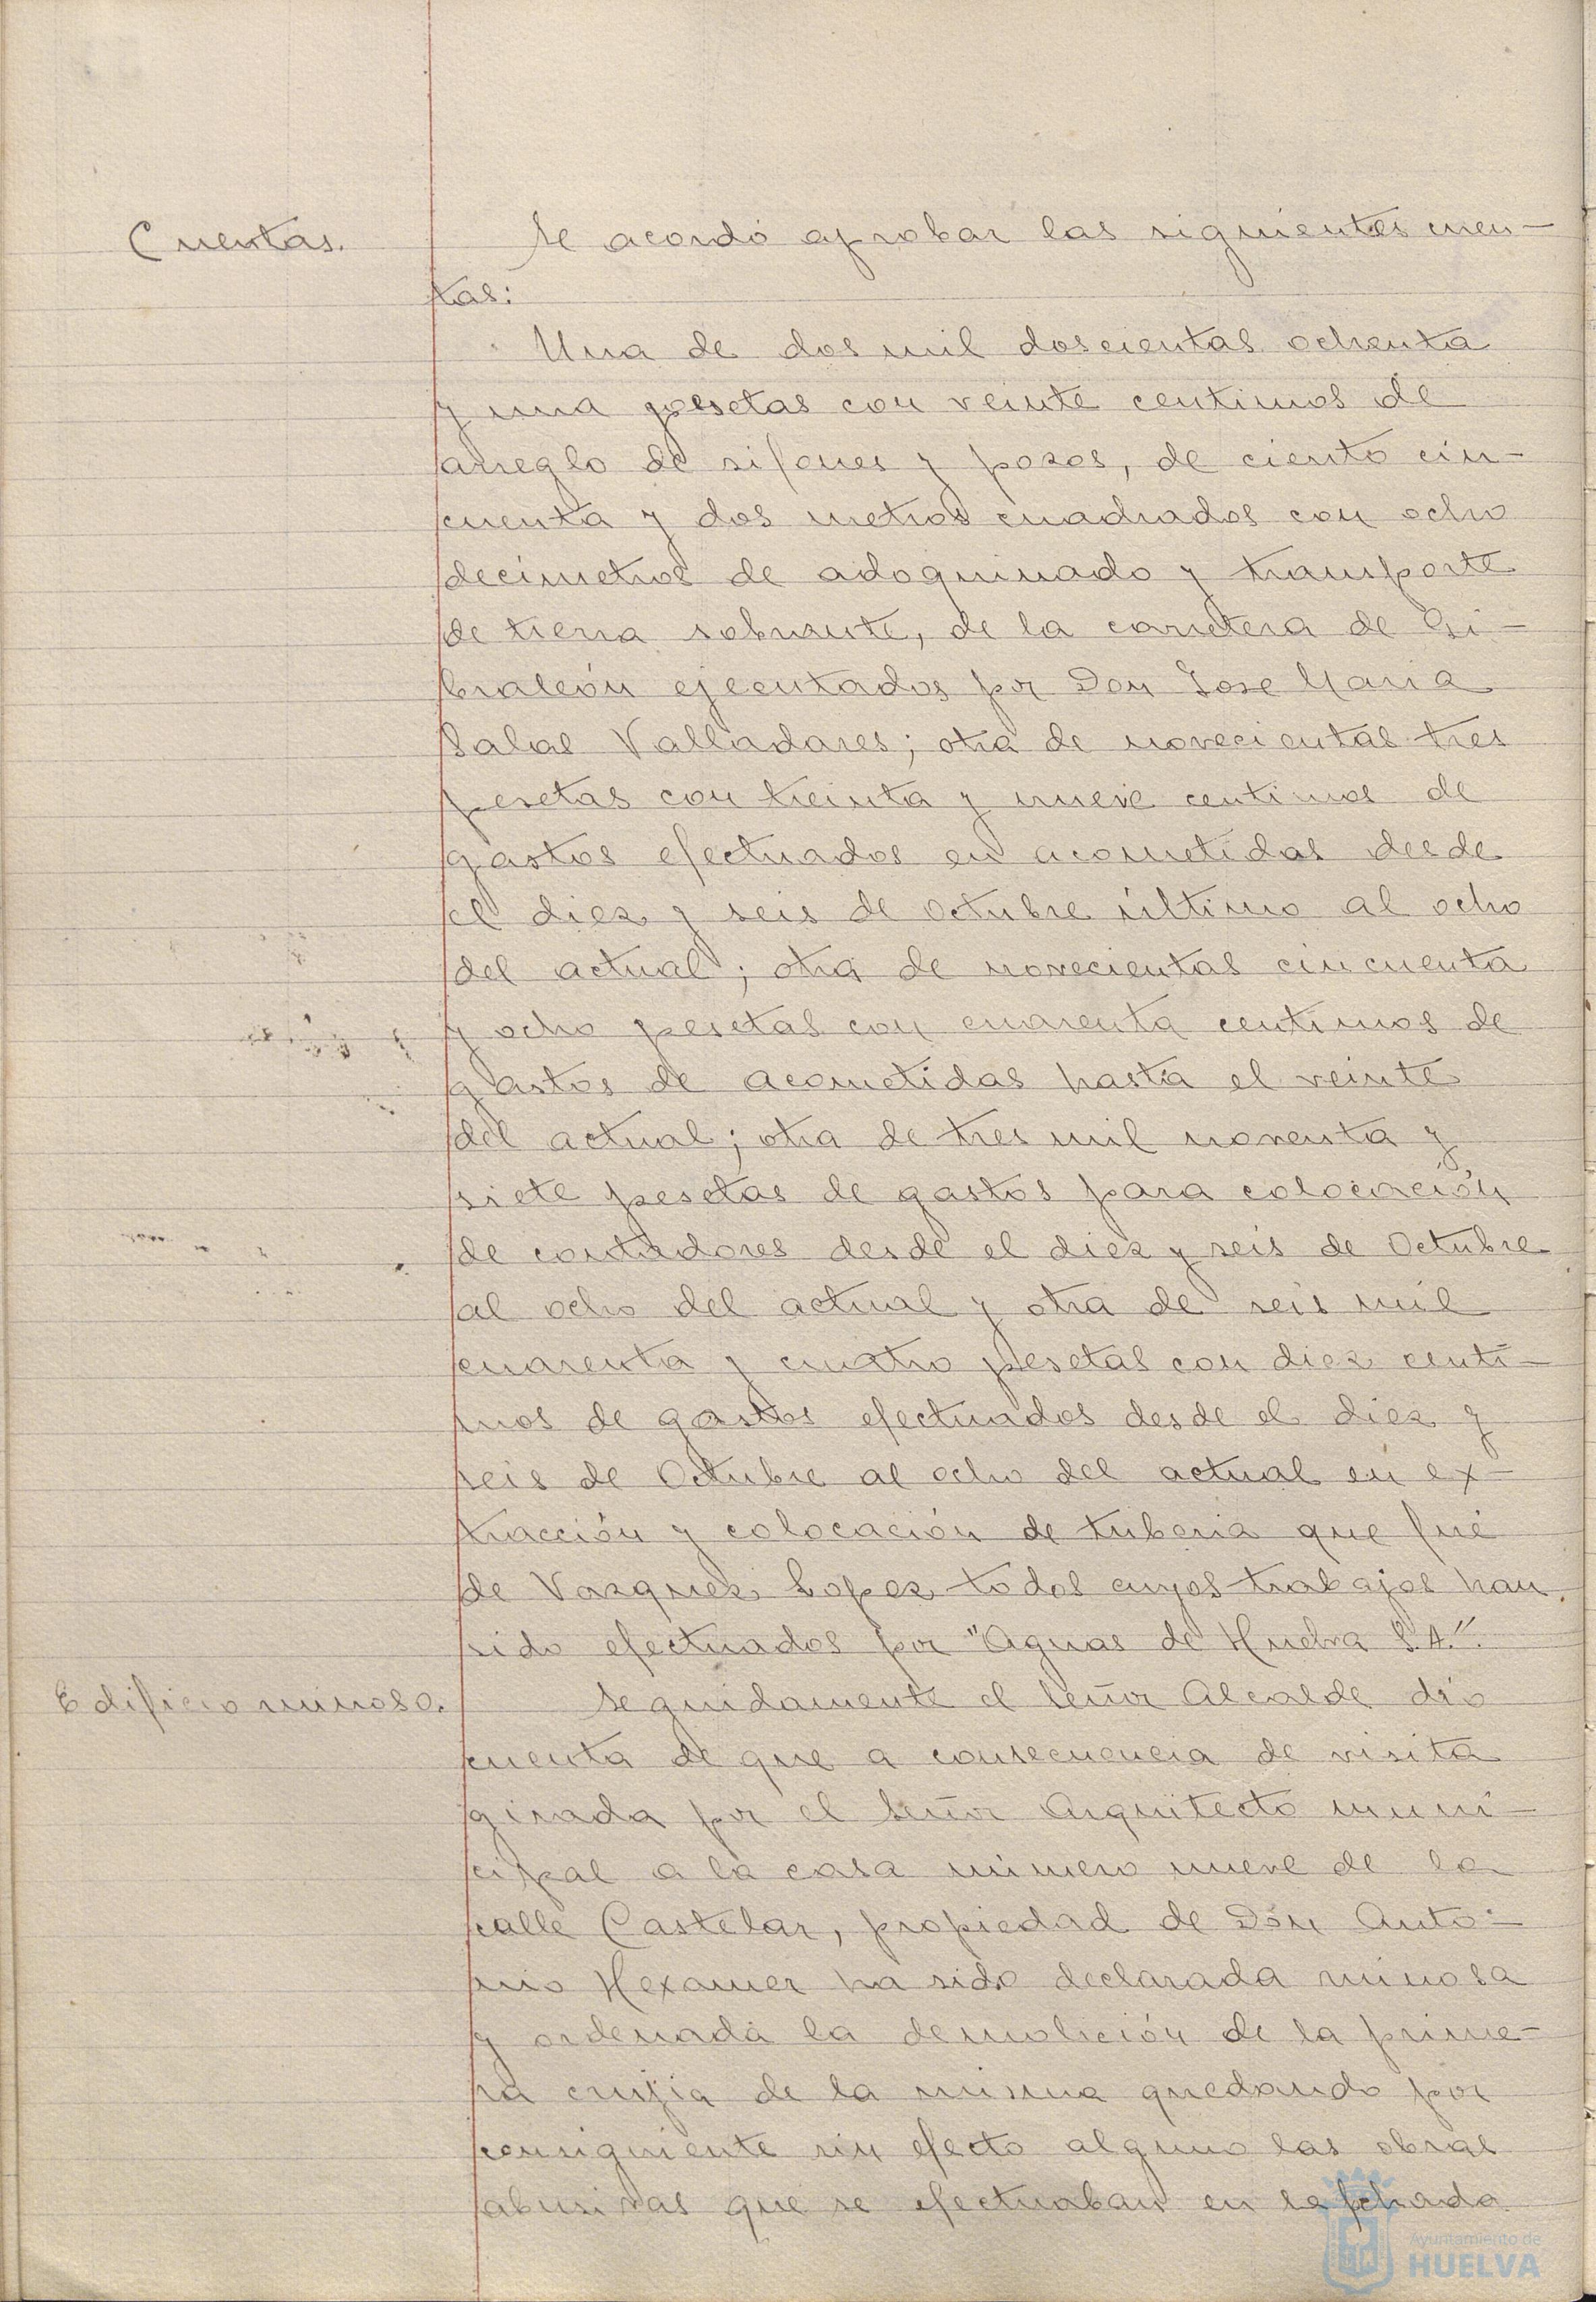 Cuentas.
Se acordó aprobar las siguientes cuen-
tas:
Una de dos mil doscientas ochenta
y una pesetas con veinte centimos de
arreglo de sifones y pozos, de ciento cin-
cuenta y dos metros cuadrados con ocho
decimetros de adoquinado y transporte
de tierra sobrante, de la carretera de Gi-
braleón ejecutados por Don Jose Maria
Salas Valladares; otra de novecientas tres
pesetas con treinta y nueve centimos de
gastos efectuados en acometidas desde
el diez y seis de Octubre último al ocho
del actual; otra de novecientas cincuenta
y ocho pesetas con cuarenta centimos de
gastos de acometidas hasta el veinte
del actual; otra de tres mil noventa y
siete pesetas de gastos para colocación
de contadores desde el diez y seis de Octubre
al ocho del actual y otra de seis mil
cuarenta y cuatro pesetas con diez centi-
mos de gastos efectuados desde el diez y
seis de Octubre al ocho del actual en ex-
tracción y colocación de tuberia que fué
de Vazquez Lopez todos cuyos trabajos han
sido efectuados por "Aguas de Huelva S.A.".
Edificio ruinoso.
Seguidamente el Señor Alcalde dió
cuenta de que a consecuencia de visita
girada por el Señor Arquitecto muni-
cipal a la casa número nueve de la
calle Castelar, propiedad de Don Anto-
nio Hexamer ha sido declarada ruinosa
y ordenada la demolición de la prime-
ra crujia de la misma quedando por
consiguiente sin efecto alguno las obras
abusivas que se efectuaban en la fachada
Ayuntamiento de
HUELVA